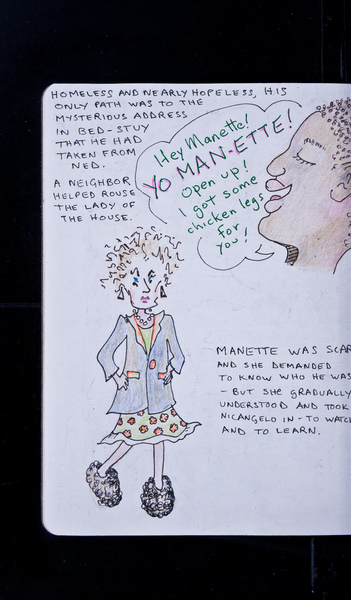 HOMELESS AND NEARLY HOPELESS, HIS
ONLY PATH WAS TO THE
MYSTERIOUS ADDRESS
IN BED-STUY
THAT HE HAD
TAKEN FROM
NED.
A NEIGHBOR
HELPED ROUSE
THE LADY OF
THE HOUSE.
Hey Manette!
YO MAN-ETTE!
Open up!
I got some
chicken legs
for
you!
MANETTE WAS SCAR
AND SHE DEMANDED
TO KNOW WHO HE WAS
- BUT SHE GRADUALLY
UNDERSTOOD AND TOOK
NICANGELO IN - TO WATCH
AND TO LEARN.